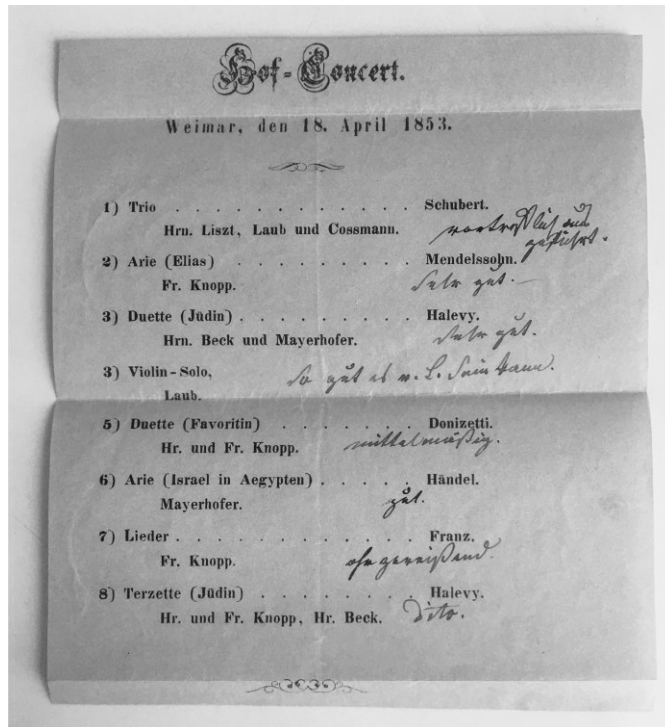 Hof-Concert.
Weimar, den 18. April 1853.
1) Trio . . . . . . . . . . . . Schubert.
Hrn. Liszt, Laub und Cossmann. vortrefflich aus
geführt.
2) Arie (Elias) . . . . . . . . . Mendelssohn.
Fr. Knopp. Sehr gut.
3) Duette (Jüdin) . . . . . . . . . Halevy.
Hrn. Beck und Mayerhofer. Sehr gut.
3) Violin-Solo, So gut es v. L. sein kann.
Laub.
5) Duette (Favoritin) . . . . . . . Donizetti.
Hr. und Fr. Knopp. mittelmäßig.
6) Arie (Israel in Aegypten) . . . . . Händel.
Mayerhofer. gut.
7) Lieder . . . . . . . . . . . . Franz.
Fr. Knopp. ohrzerreißend.
8) Terzette (Jüdin) . . . . . . . Halevy.
Hr. und Fr. Knopp, Hr. Beck. Dito.